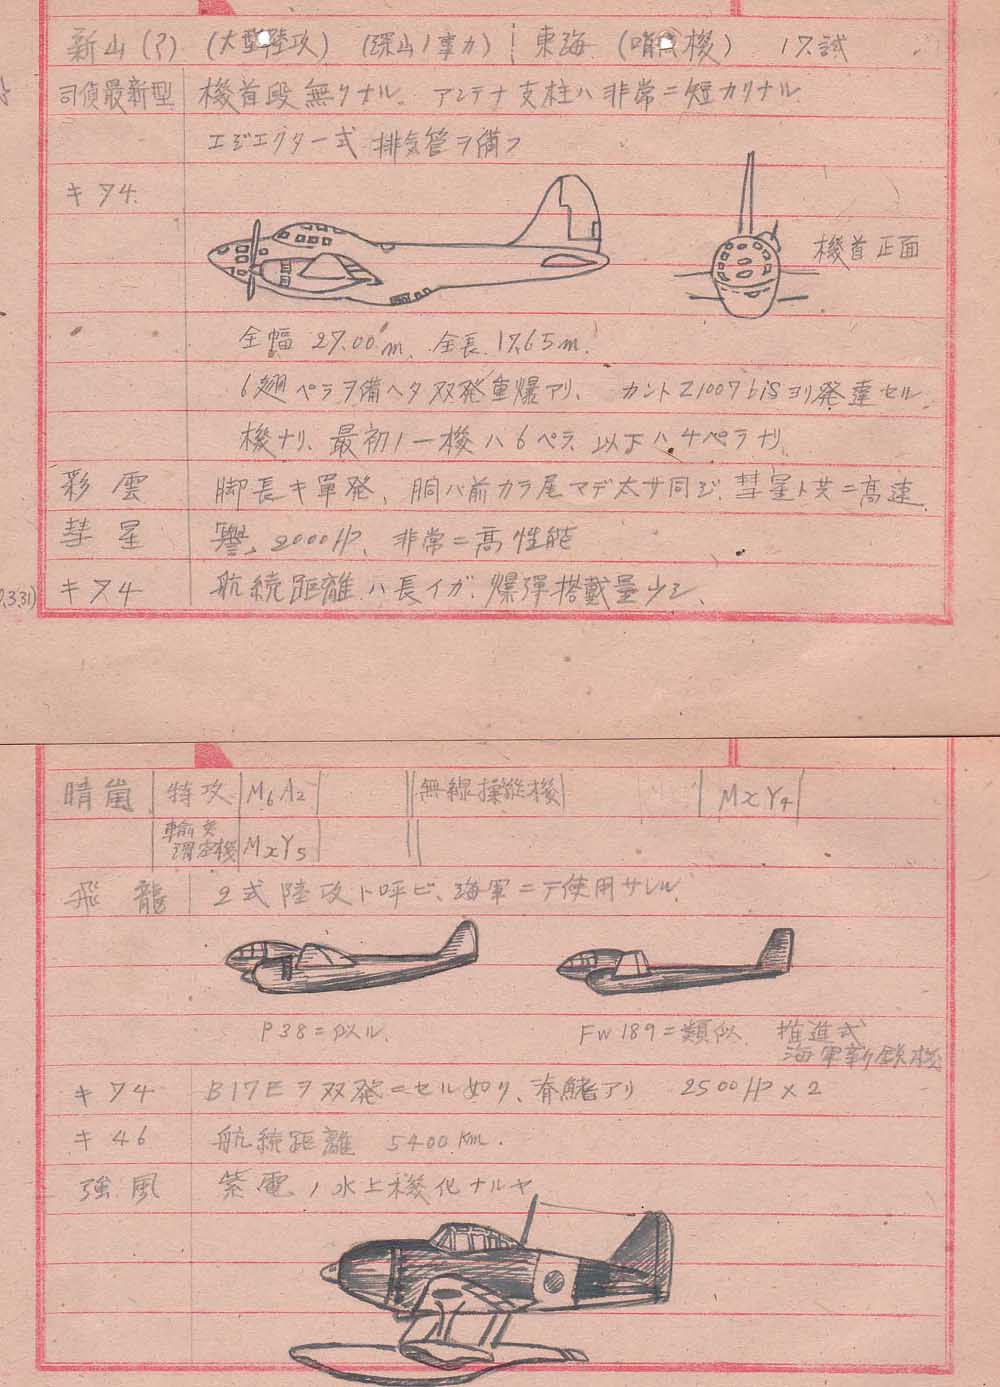 新山(?) (大型陸攻) (深山ノ事カ) 東海 (哨戒機) 17試
司偵最新型 機首段無クナル. アンテナ支柱ハ非常ニ短カクナル
エジエクター式 排気管ヲ備フ
キ74.
機首正面
全幅 27.00m. 全長 17.65m.
6翅ペラヲ備ヘタ双発重爆アリ、 カントZ1007bisヨリ発達セル
機ナリ、最初ノ一機ハ6ペラ、以下ハ4ペラナリ
彩雲 脚長キ單発、胴ハ前カラ尾マデ太サ同ジ、彗星ト共ニ高速.
彗星 譽、2000HP、非常ニ高性能
.3.31) キ74 航続距離ハ長イガ、爆弾搭載量少シ、
晴嵐 特攻 M6A2 無線操縦機 MXY4
輸送滑空機 MXY5
飛龍 2式陸攻ト呼ビ、海軍ニテ使用サレル.
P38ニ似ル. FW189ニ類似. 推進式
海軍新鋭機
キ74 B17Eヲ双発ニセル如ク、脊鰭アリ 2500HP×2
キ46 航続距離 5400Km.
強風 紫電ノ水上機化ナルヤ